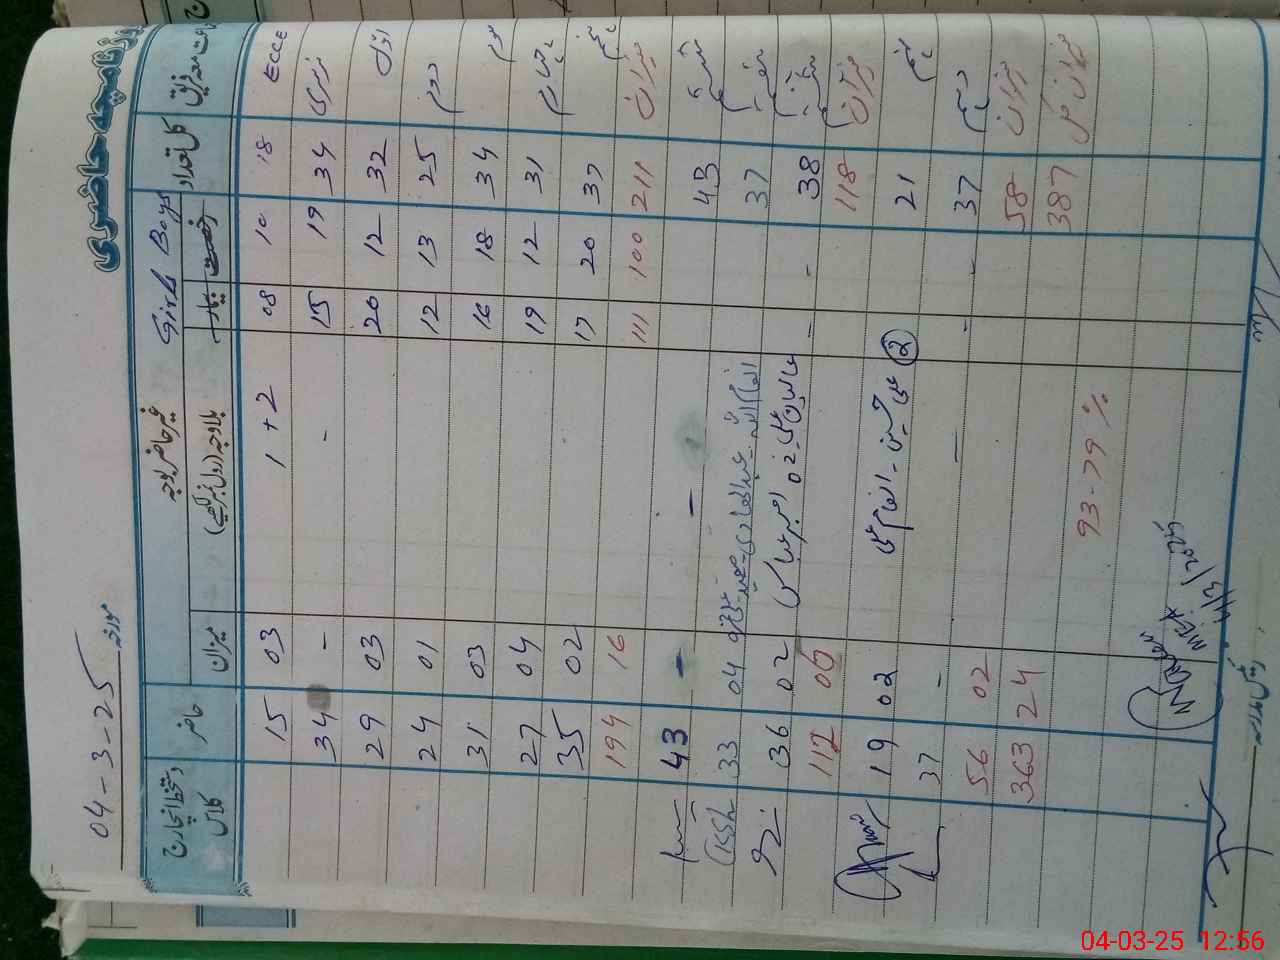 روزنامچہ حاضری
مورخہ 04-3-25
جماعت معہ فریق | کل تعداد | Boys رخصت | Girls بیمار | غیر حاضر بوجہ | بلاوجہ (رول نمبر لکھیے) | میزان | حاضر | دستخط انچارج کلاس
ECCE 18 10 08 1 + 2 03 15
نرسری 34 19 15 - - 34
اول 32 12 20 03 29
دوم 25 13 12 01 24
سوم 34 18 16 03 31
چہارم 31 12 19 04 27
پنجم 37 20 17 02 35
میزان 211 100 111 16 194
ششم 43 - - 43
ہفتم 37 04 33
ہشتم 38 - - 02 36
میزان 118 06 112
نہم 21 علی حسین - انعام علی ② 02 19
دہم 37 - - - - 37
میزان 58 02 56
میزان کل 387 24 363
93-79 %
4/3/2025
04-03-25 12:56